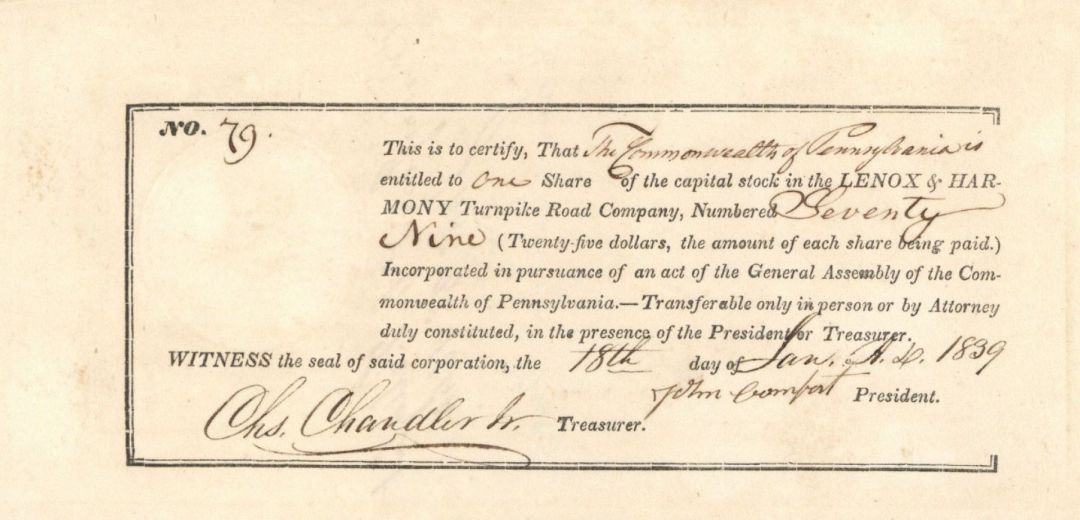 NO. 79.
This is to certify, That The Commonwealth of Pennsylvania is
entitled to One Share of the capital stock in the LENOX & HAR-
MONY Turnpike Road Company, Numbered Seventy
Nine (Twenty-five dollars, the amount of each share being paid.)
Incorporated in pursuance of an act of the General Assembly of the Com-
monwealth of Pennsylvania.—Transferable only in person or by Attorney
duly constituted, in the presence of the President or Treasurer.
WITNESS the seal of said corporation, the 18th day of Jan. A.D. 1839
John Comfort President.
Chs. Chandler Jr. Treasurer.